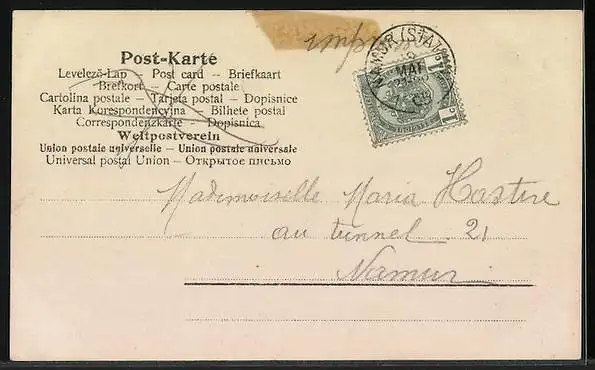 Post-Karte
Levelező-Lap – Post card – Briefkaart
Brefkort – Carte postale
Cartolina postale – Tarjeta postal – Dopisnice
Karta Korespondencyjna – Bilhete postal
Correspondenzkarte – Dopisnica
Weltpostverein
Union postale universelle – Union postale universale
Universal postal Union – Открытое письмо
NAMUR (STATION)
MAI
1
Mademoiselle Maria Hastire
au tunnel 21
Namur